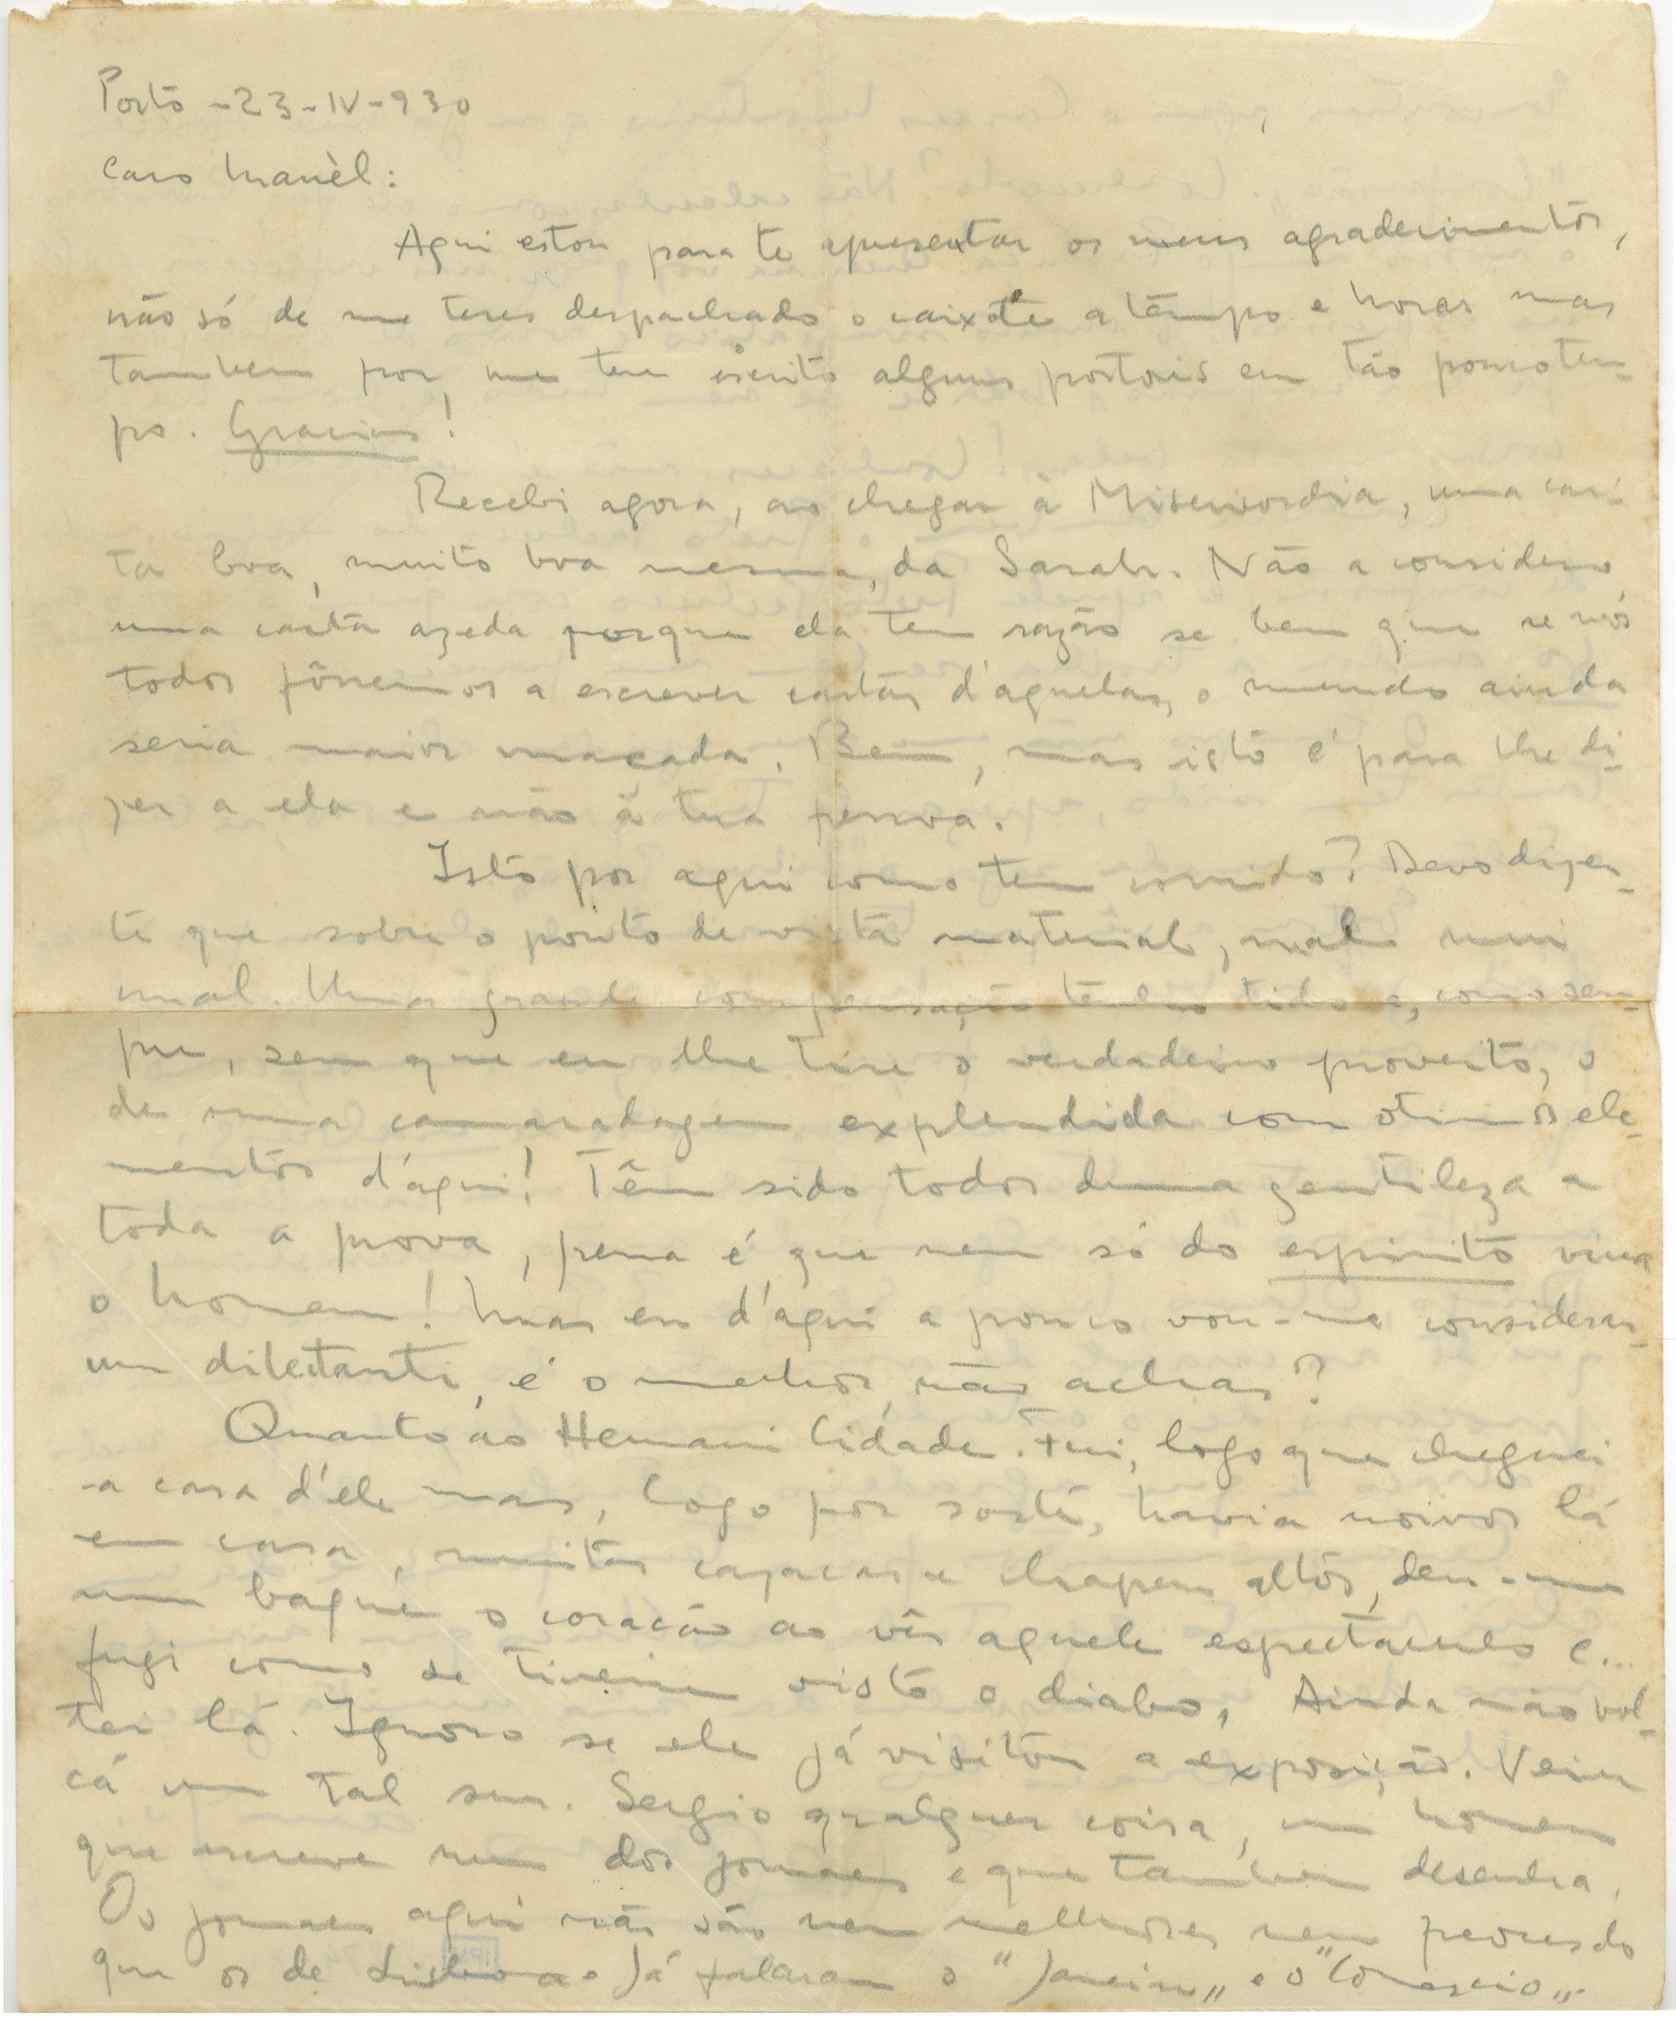 Porto - 23 - IV - 930
Caro Manèl:
Aqui estou para te apresentar os meus agradecimentos,
não só de me teres despachado o caixote a tempo e horas mas
tambem por me ter escrito alguns postais em tão pouco tem-
po. Gracias!
Recebi agora, ao chegar à Misericordia, uma car-
ta boa, muito boa mesmo, da Sarah. Não a considero
uma carta azeda porque ela tem razão se bem que se nós
todos fôssemos a escrever cartas d'aquelas, o mundo ainda
seria maior maçada. Bem, mas isto é para lhe di-
zer a ela e não à tua pessoa.
Isto por aqui como tem corrido? Devo dizer-
te que sobre o ponto de vista material, mal mui
mal. Uma grande compensação tenho tido e, como sem-
pre, sem que eu lhe tire o verdadeiro proveito, o
de uma camaradagem explendida com otimos ele-
mentos d'aqui! Têm sido todos duma gentileza a
toda a prova, pena é que nem só do espirito viva
o homem! Mas eu d'aqui a pouco vou-me considerar
um diletante, é o melhor, não achas?
Quanto ao Hernani Cidade. Fui, logo que cheguei
a casa d'ele mas, logo por sorte, havia noivos lá
em casa, muitas casacas e chapeus altos, deu-me
um baque o coração ao vêr aquele espectaculo e...
fugi como se tivesse visto o diabo. Ainda não vol-
tei lá. Ignoro se ele já visitou a exposição. Veiu
cá um tal snr. Sergio qualquer coisa, um homem
que escreve num dos jornaes e que tambem desenha.
Os jornaes aqui não são nem melhores nem peores do
que os de Lisboa. Já falaram o "Janeiro" e o "Comercio".